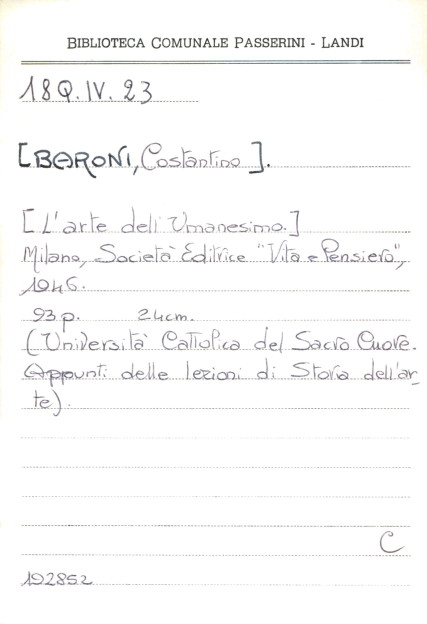 BIBLIOTECA COMUNALE PASSERINI - LANDI
18Q.IV.23
[BARONI, Costantino].
[L'arte dell'Umanesimo.]
Milano, Società Editrice "Vita e Pensiero",
1946.
93 p. 24cm.
(Università Cattolica del Sacro Cuore.
Appunti delle lezioni di Storia dell'ar-
te).
C
192852